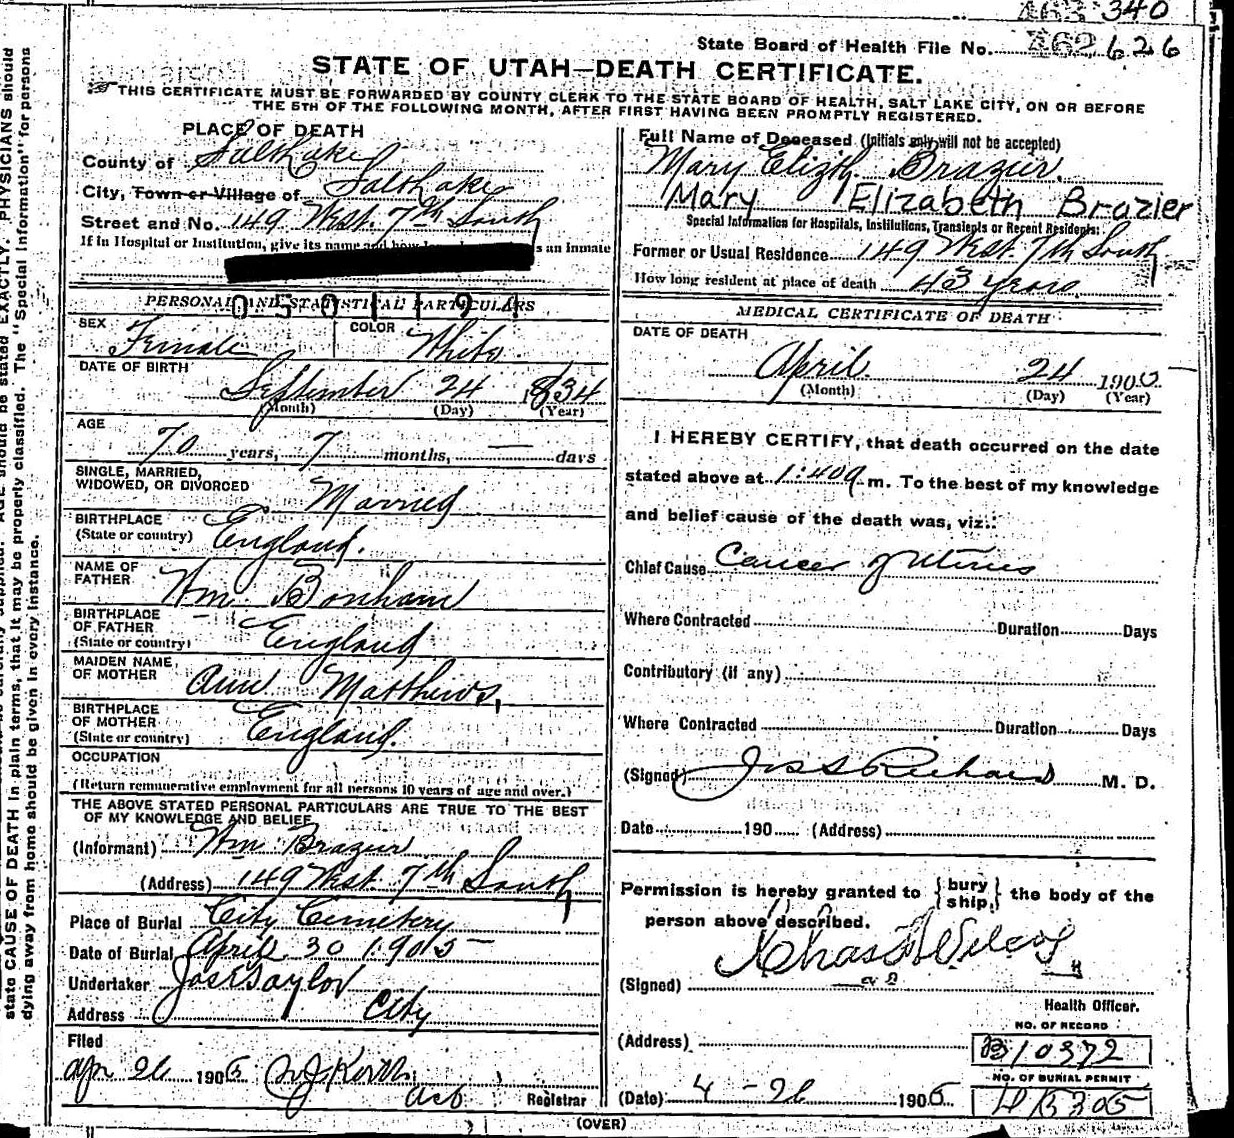 340
State Board of Health File No. 626
STATE OF UTAH—DEATH CERTIFICATE.
THIS CERTIFICATE MUST BE FORWARDED BY COUNTY CLERK TO THE STATE BOARD OF HEALTH, SALT LAKE CITY, ON OR BEFORE
THE 5TH OF THE FOLLOWING MONTH, AFTER FIRST HAVING BEEN PROMPTLY REGISTERED.
PLACE OF DEATH
County of Salt Lake
City, Town or Village of Salt Lake
Street and No. 149 West 7th South
If in Hospital or Institution, give its name and how s an inmate
PERSONAL AND STATISTICAL PARTICULARS
SEX Female COLOR White
DATE OF BIRTH
September 24 1834
(Month) (Day) (Year)
AGE
70 years, 7 months, — days
SINGLE, MARRIED,
WIDOWED, OR DIVORCED Married
BIRTHPLACE
(State or country) England.
NAME OF
FATHER Wm Bonham
BIRTHPLACE
OF FATHER
(State or country) England
MAIDEN NAME
OF MOTHER Ann Matthews,
BIRTHPLACE
OF MOTHER
(State or country) England.
OCCUPATION
(Return remunerative employment for all persons 10 years of age and over.)
THE ABOVE STATED PERSONAL PARTICULARS ARE TRUE TO THE BEST
OF MY KNOWLEDGE AND BELIEF
(Informant) Wm Brazier
(Address) 149 West 7th South
Place of Burial City Cemetery
Date of Burial April 30 1905
Undertaker Jos E Taylor
Address City
Filed
Apr 26 1905
Registrar
Full Name of Deceased (Initials only will not be accepted)
Mary Elizth. Brazier.
Mary Elizabeth Brazier
Special Information for Hospitals, Institutions, Transients or Recent Residents:
Former or Usual Residence 149 West 7th South
How long resident at place of death 43 years,
MEDICAL CERTIFICATE OF DEATH
DATE OF DEATH
April 24 1905
(Month) (Day) (Year)
I HEREBY CERTIFY, that death occurred on the date
stated above at 1:40 a m. To the best of my knowledge
and belief cause of the death was, viz.:
Chief Cause Cancer of Uterus
Where Contracted Duration Days
Contributory (if any)
Where Contracted Duration Days
(Signed) Jos S Richards M. D.
Date 190 (Address)
Permission is hereby granted to {bury ship,} the body of the
person above described.
(Signed)
Health Officer.
(Address)
NO. OF RECORD
B10372
NO. OF BURIAL PERMIT
(Date) 4-26 1905
(OVER)
state CAUSE OF DEATH in plain terms, that it may be properly classified. The "Special Information" for persons
dying away from home should be given in every instance.
AGE should be stated EXACTLY. PHYSICIANS should